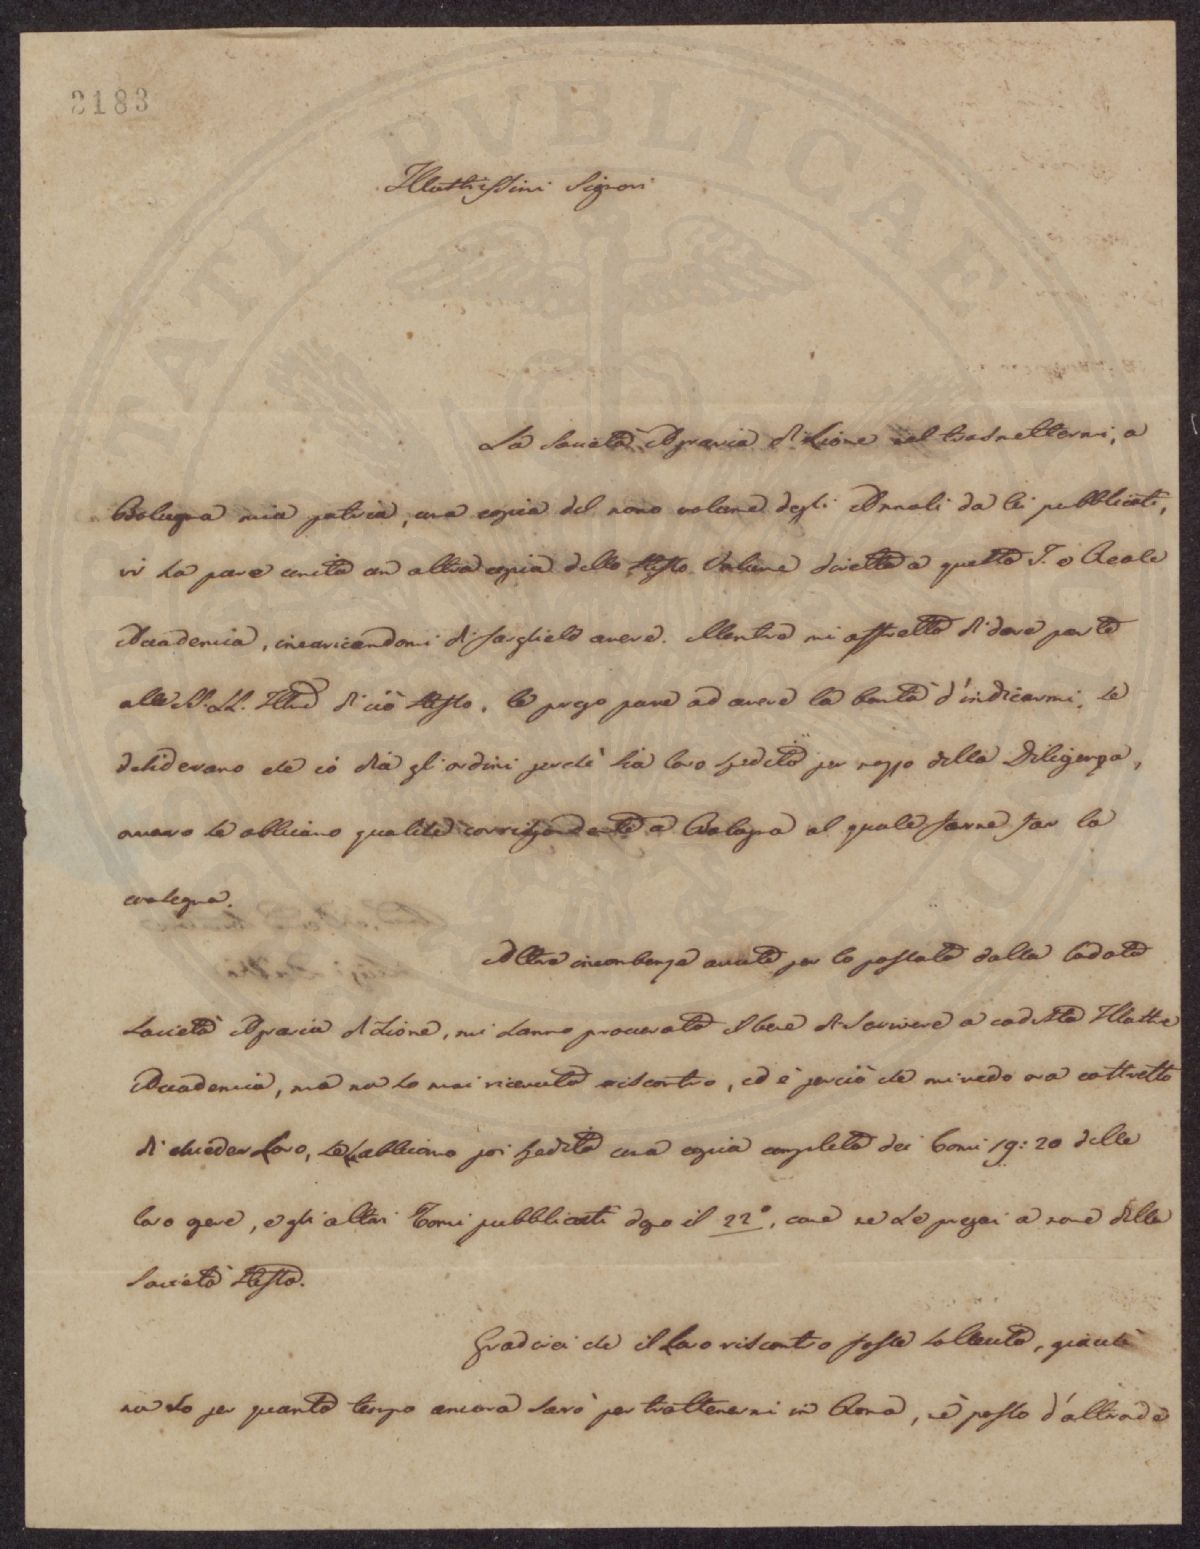 2183
PUBLICAE
Illustrissimi Signori
La Società Agraria di Lione nel trasmettermi, a
Bologna mia patria, una copia del nono volume degli Annali da lei pubblicati,
vi ha pure unita un altra copia dello stesso Volume diretta a questa I. e Reale
Accademia, incaricandomi di fargliela avere. Mentre mi affretto di dare parte
alle SS. LL. Illme di ciò stesso, le prego pure ad avere la bontà d'indicarmi, se
desiderano che io dia gl'ordini perchè sia loro spedito per mezzo della Diligenza,
ovvero se abbiano qualche corrispondente a Bologna al quale farne far la
consegna.
Altra incombenza avuta per lo passato dalla lodata
Società Agraria di Lione, mi hanno procurato il bene di scrivere a codesta Illustre
Accademia, ma non ho mai ricevuto riscontro, ed è perciò che mi vedo ora costretto
di chieder Loro, se abbiano poi spedita una copia completa dei Tomi 19: 20 delle
loro opere, e gli altri Tomi pubblicati dopo il 22°, come ne Le pregai a nome della
Società stessa.
Gradirei che il Loro riscontro fosse sollecito, giacchè
non so per quanto tempo ancora sarò per trattenermi in Roma, nè posso d'altronde